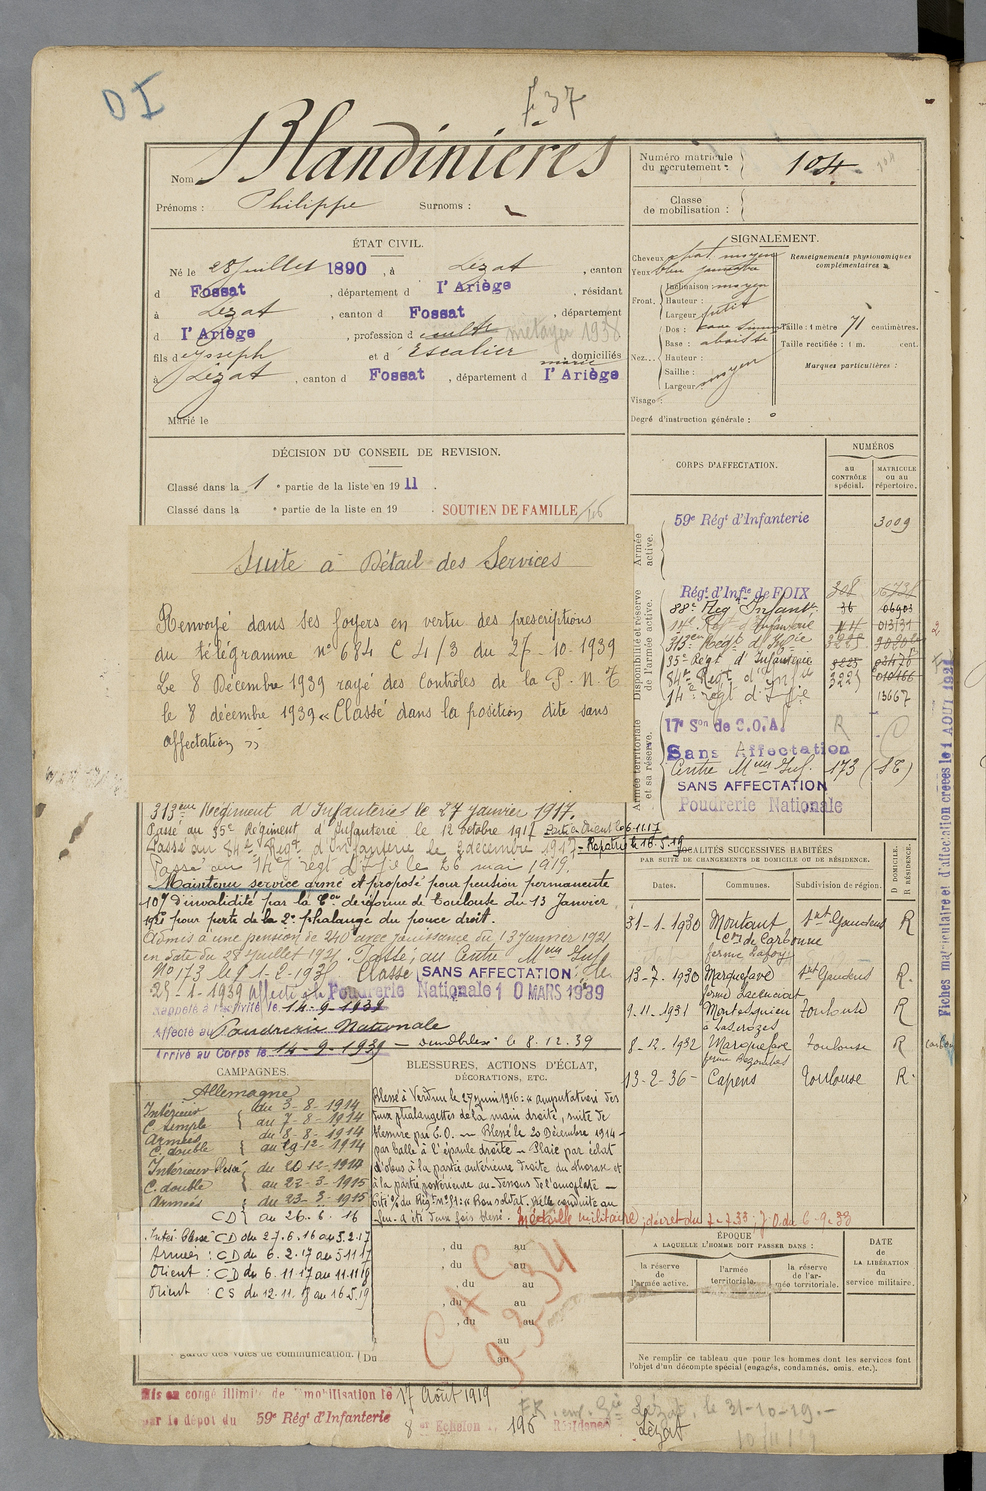 D I
F 37
Nom Blandinières
Prénoms : Philippe Surnoms :
Numéro matricule du recrutement : 104
Classe de mobilisation :
ÉTAT CIVIL.
Né le 28 Juillet 1890, à Lézat, canton
d Fossat, département d l'Ariège, résidant
à Lézat, canton d Fossat, département
d l'Ariège, profession d cult métayer 1938
fils de Joseph et d' Escalier, domiciliés
à Lézat, canton d Fossat, département d l'Ariège
Marié le
SIGNALEMENT.
Cheveux chat. moyen
Yeux bleu
Front.
Inclinaison : moyen
Hauteur :
Largeur petit
Nez...
Dos :
Base :
Hauteur :
Saillie :
Largeur moyen
Visage :
Degré d'instruction générale :
Renseignements physionomiques complémentaires :
Taille : 1 mètre 71 centimètres.
Taille rectifiée : 1 m. cent.
Marques particulières :
DÉCISION DU CONSEIL DE REVISION.
Classé dans la 1 e partie de la liste en 1911.
Classé dans la e partie de la liste en 19 . SOUTIEN DE FAMILLE
Suite à Détail des Services
Renvoyé dans ses foyers en vertu des prescriptions
du télégramme n° 684 C 4/3 du 27-10-1939
Le 8 Décembre 1939 rayé des contrôles de la P.N.T
le 8 décembre 1939 « Classé dans la position dite sans
affectation »
313eme Régiment d'Infanterie le 27 janvier 1917.
Passé au 85e Régiment d'Infanterie le 12 octobre 1917
Passé au 84e Régt d'Infanterie le 3 décembre 1917 - Rapatrié le 16.5.19
Passé au 14e régt d'Ifie le 26 mai 1919.
Maintenu service armé et proposé pour pension permanente
10% d'invalidité par la Con de réforme de Toulouse du 13 Janvier
pour perte de la 2e phalange du pouce droit.
Admis à une pension de 240 avec jouissance du 13 Janvier 1921
en date du 28 juillet 1921. Passé au Centre
N° 173 le Classé SANS AFFECTATION
25-1-1939 affecté à la Poudrerie Nationale 10 MARS 1939
Rappelé à l'activité le 14-9-1939
Affecté au Poudrerie Nationale
Arrivé au Corps le 14-9-1939 le 8.12.39
CORPS D'AFFECTATION.
NUMÉROS
au CONTRÔLE spécial.
MATRICULE ou au répertoire.
Armée active.
59e Régt d'Infanterie 3009
Disponibilité et réserve de l'armée active.
Régt d'Infie de FOIX 308
88e Reg Infant. 36
14e Regt d'Infanterie
313e Regt d'Ifie
85e Régt d'Infanterie
84e Regt d'Inf
14e regt d'Ifie 13667
Armée territoriale et sa réserve.
17e Son de C.O.A.
Sans Affectation
Centre 173
SANS AFFECTATION
Poudrerie Nationale
LOCALITÉS SUCCESSIVES HABITÉES
PAR SUITE DE CHANGEMENTS DE DOMICILE OU DE RÉSIDENCE.
Dates. Communes. Subdivision de région. D DOMICILE. R RÉSIDENCE.
31-1-1930 Montaut St Gaudens R
Cne de Carbonne
ferme Lafoy
13-7-1930 Marquefave St Gaudens R.
9-11-1931 Montesquieu Toulouse R
à Laserozes
8-12-1932 Marquefave Toulouse R
13-2-36- Capens Toulouse R.
Fiches matriculaire et d'affectation créées le 1 AOUT 193
CAMPAGNES.
Allemagne
Intérieur du 3-8-1914
C. simple au 7-8-1914
Armées du 8-8-1914
C. double au 19-12-1914
Intérieur Blessé du 20-12-1914
C. double au 22-3-1915
Armées du 23-3-1915
CD au 26.6.16
Intér Blessé CD du 27.6.16 au 5.2.17
Armées : CD du 6.2.17 au 5.11.17
Orient : CD du 6.11.17 au 11.11.18
Orient : CS du 12.11.18 au 16.5.19
garde des voies de communication. (Du
BLESSURES, ACTIONS D'ÉCLAT,
DÉCORATIONS, ETC.
Blessé à Verdun le 27 juin 1916 : « amputation des
deux phalangettes de la main droite, suite de
blessure par E.O. - Blessé le 20 Décembre 1914 -
par balle à l'épaule droite - Plaie par éclat
d'obus à la partie antérieure droite du thorax et
à la partie postérieure au-dessous de l'omoplate -
Cité O/ du Régt n° 91 : « Bon soldat, belle conduite au
feu. a été deux fois blessé. Médaille militaire, décret du 7-7.33; J.O. du 6-9-33
, du au
, du au
, du au
, du au
, du au
au
au
ÉPOQUE
A LAQUELLE L'HOMME DOIT PASSER DANS :
la réserve de l'armée active.
l'armée territoriale.
la réserve de l'armée territoriale.
DATE de LA LIBÉRATION du service militaire.
Ne remplir ce tableau que pour les hommes dont les services font
l'objet d'un décompte spécial (engagés, condamnés, omis, etc.).
Mis en congé illimité de démobilisation le 17 Août 1919
par le dépôt du 59e Régt d'Infanterie
8 er Echelon n° 196 Résidence Lézat
Lézat, le 31-10-19.-